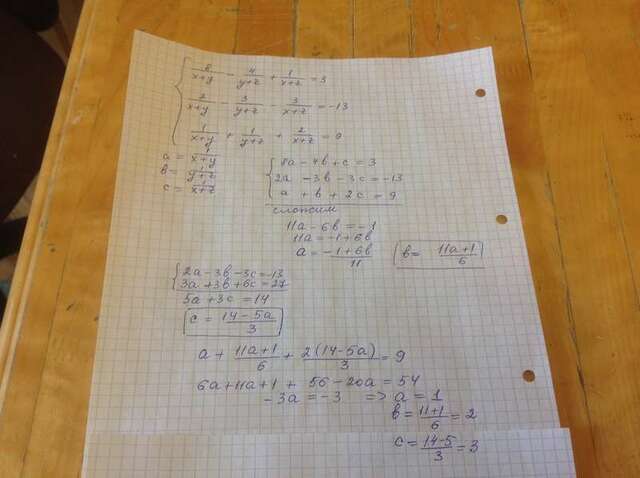 8/(x+y) - 4/(y+z) + 1/(x+z) = 3
2/(x+y) - 3/(y+z) - 3/(x+z) = -13
1/(x+y) + 1/(y+z) + 2/(x+z) = 9
a = 1/(x+y)
b = 1/(y+z)
c = 1/(x+z)
8a - 4b + c = 3
2a - 3b - 3c = -13
a + b + 2c = 9
сложим
11a - 6b = -1
11a = -1 + 6b
a = (-1 + 6b)/11
b = (11a + 1)/6
2a - 3b - 3c = -13
3a + 3b + 6c = 27
5a + 3c = 14
c = (14 - 5a)/3
a + (11a + 1)/6 + 2(14 - 5a)/3 = 9
6a + 11a + 1 + 56 - 20a = 54
-3a = -3 => a = 1
b = (11 + 1)/6 = 2
c = (14 - 5)/3 = 3